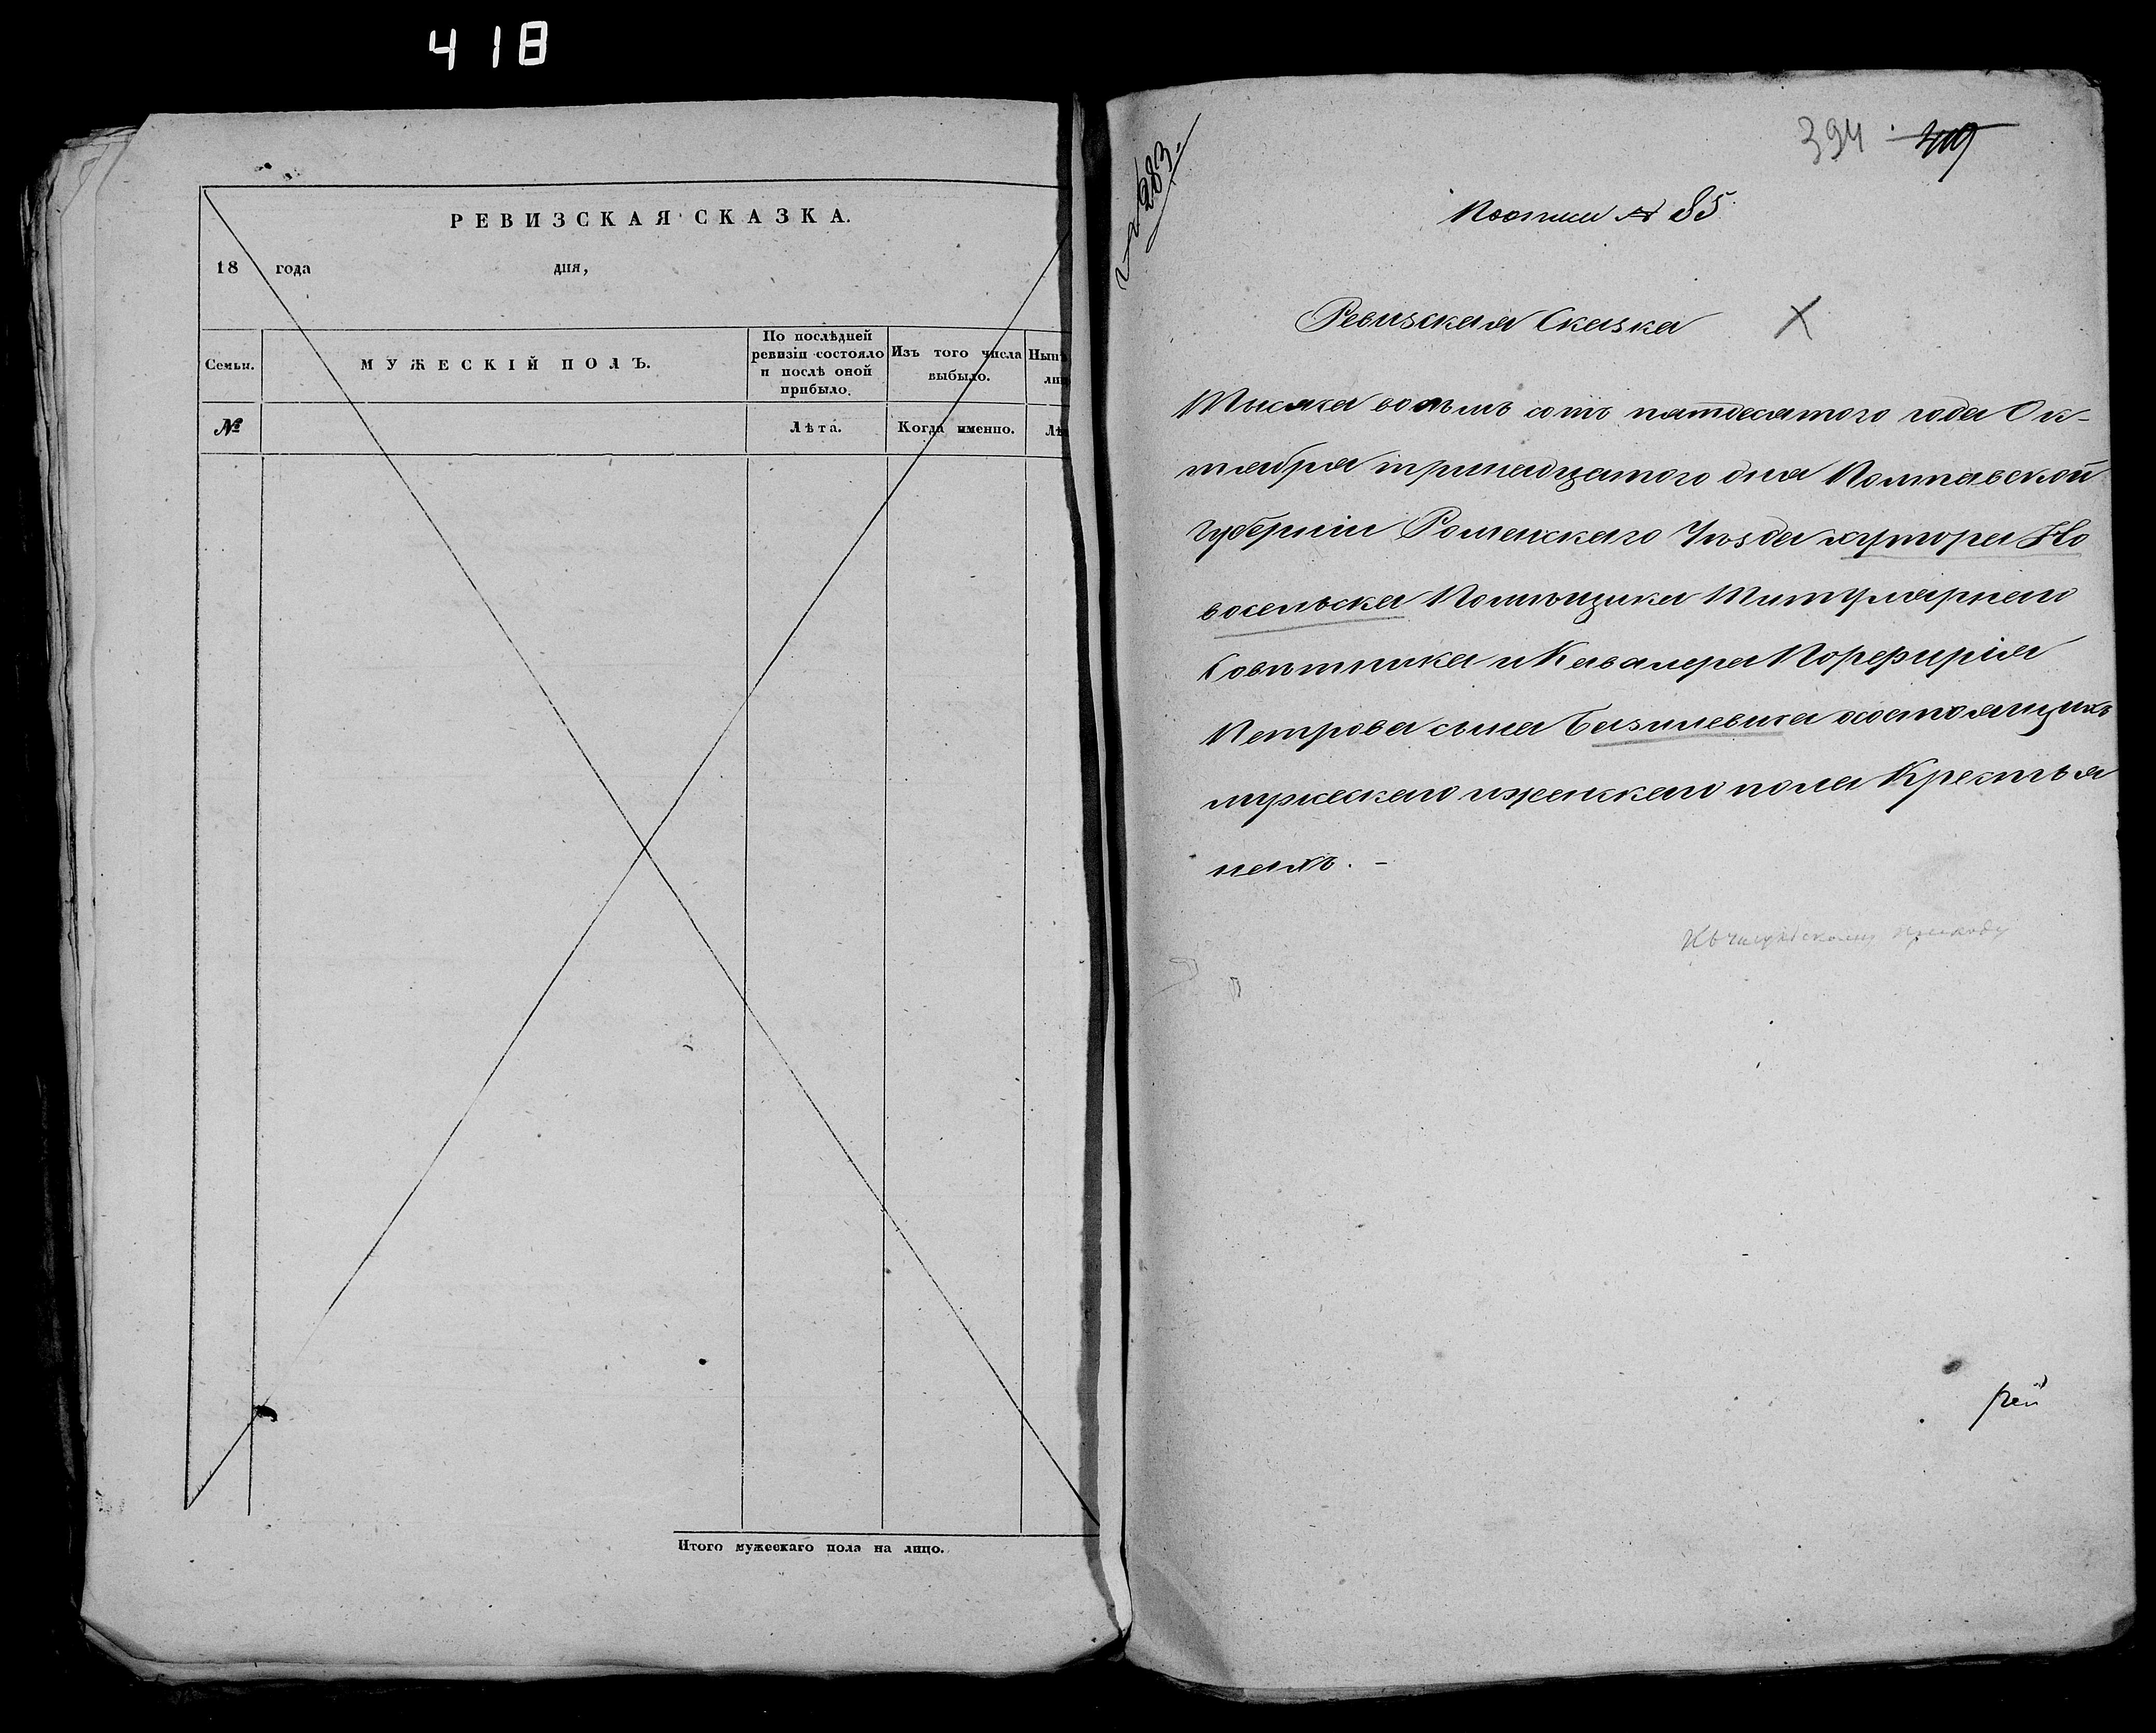 418
РЕВИЗСКАЯ СКАЗКА.
18 года дня,
Семьи.
МУЖЕСКІЙ ПОЛЪ.
По послѣдней
ревизіи состояло
и послѣ оной
прибыло.
Изъ того числа
выбыло.
№
Лѣта.
Когда именно.
Итого мужескаго пола на лицо.
№ 283.
394
По описи № 85
Ревизская Сказка
Тысяча восемь сотъ пятдесятого года Ок-
тября тринадцатого дня Полтавской
Губерніи Роменскаго Уѣзда хутора Но
восельска Помѣщика Титулярнаго
Совѣтника и Кавалера Порфирія
Петрова сына Базилевича осостоящихъ
мужескаго иженскаго пола Крестья
нахъ. -